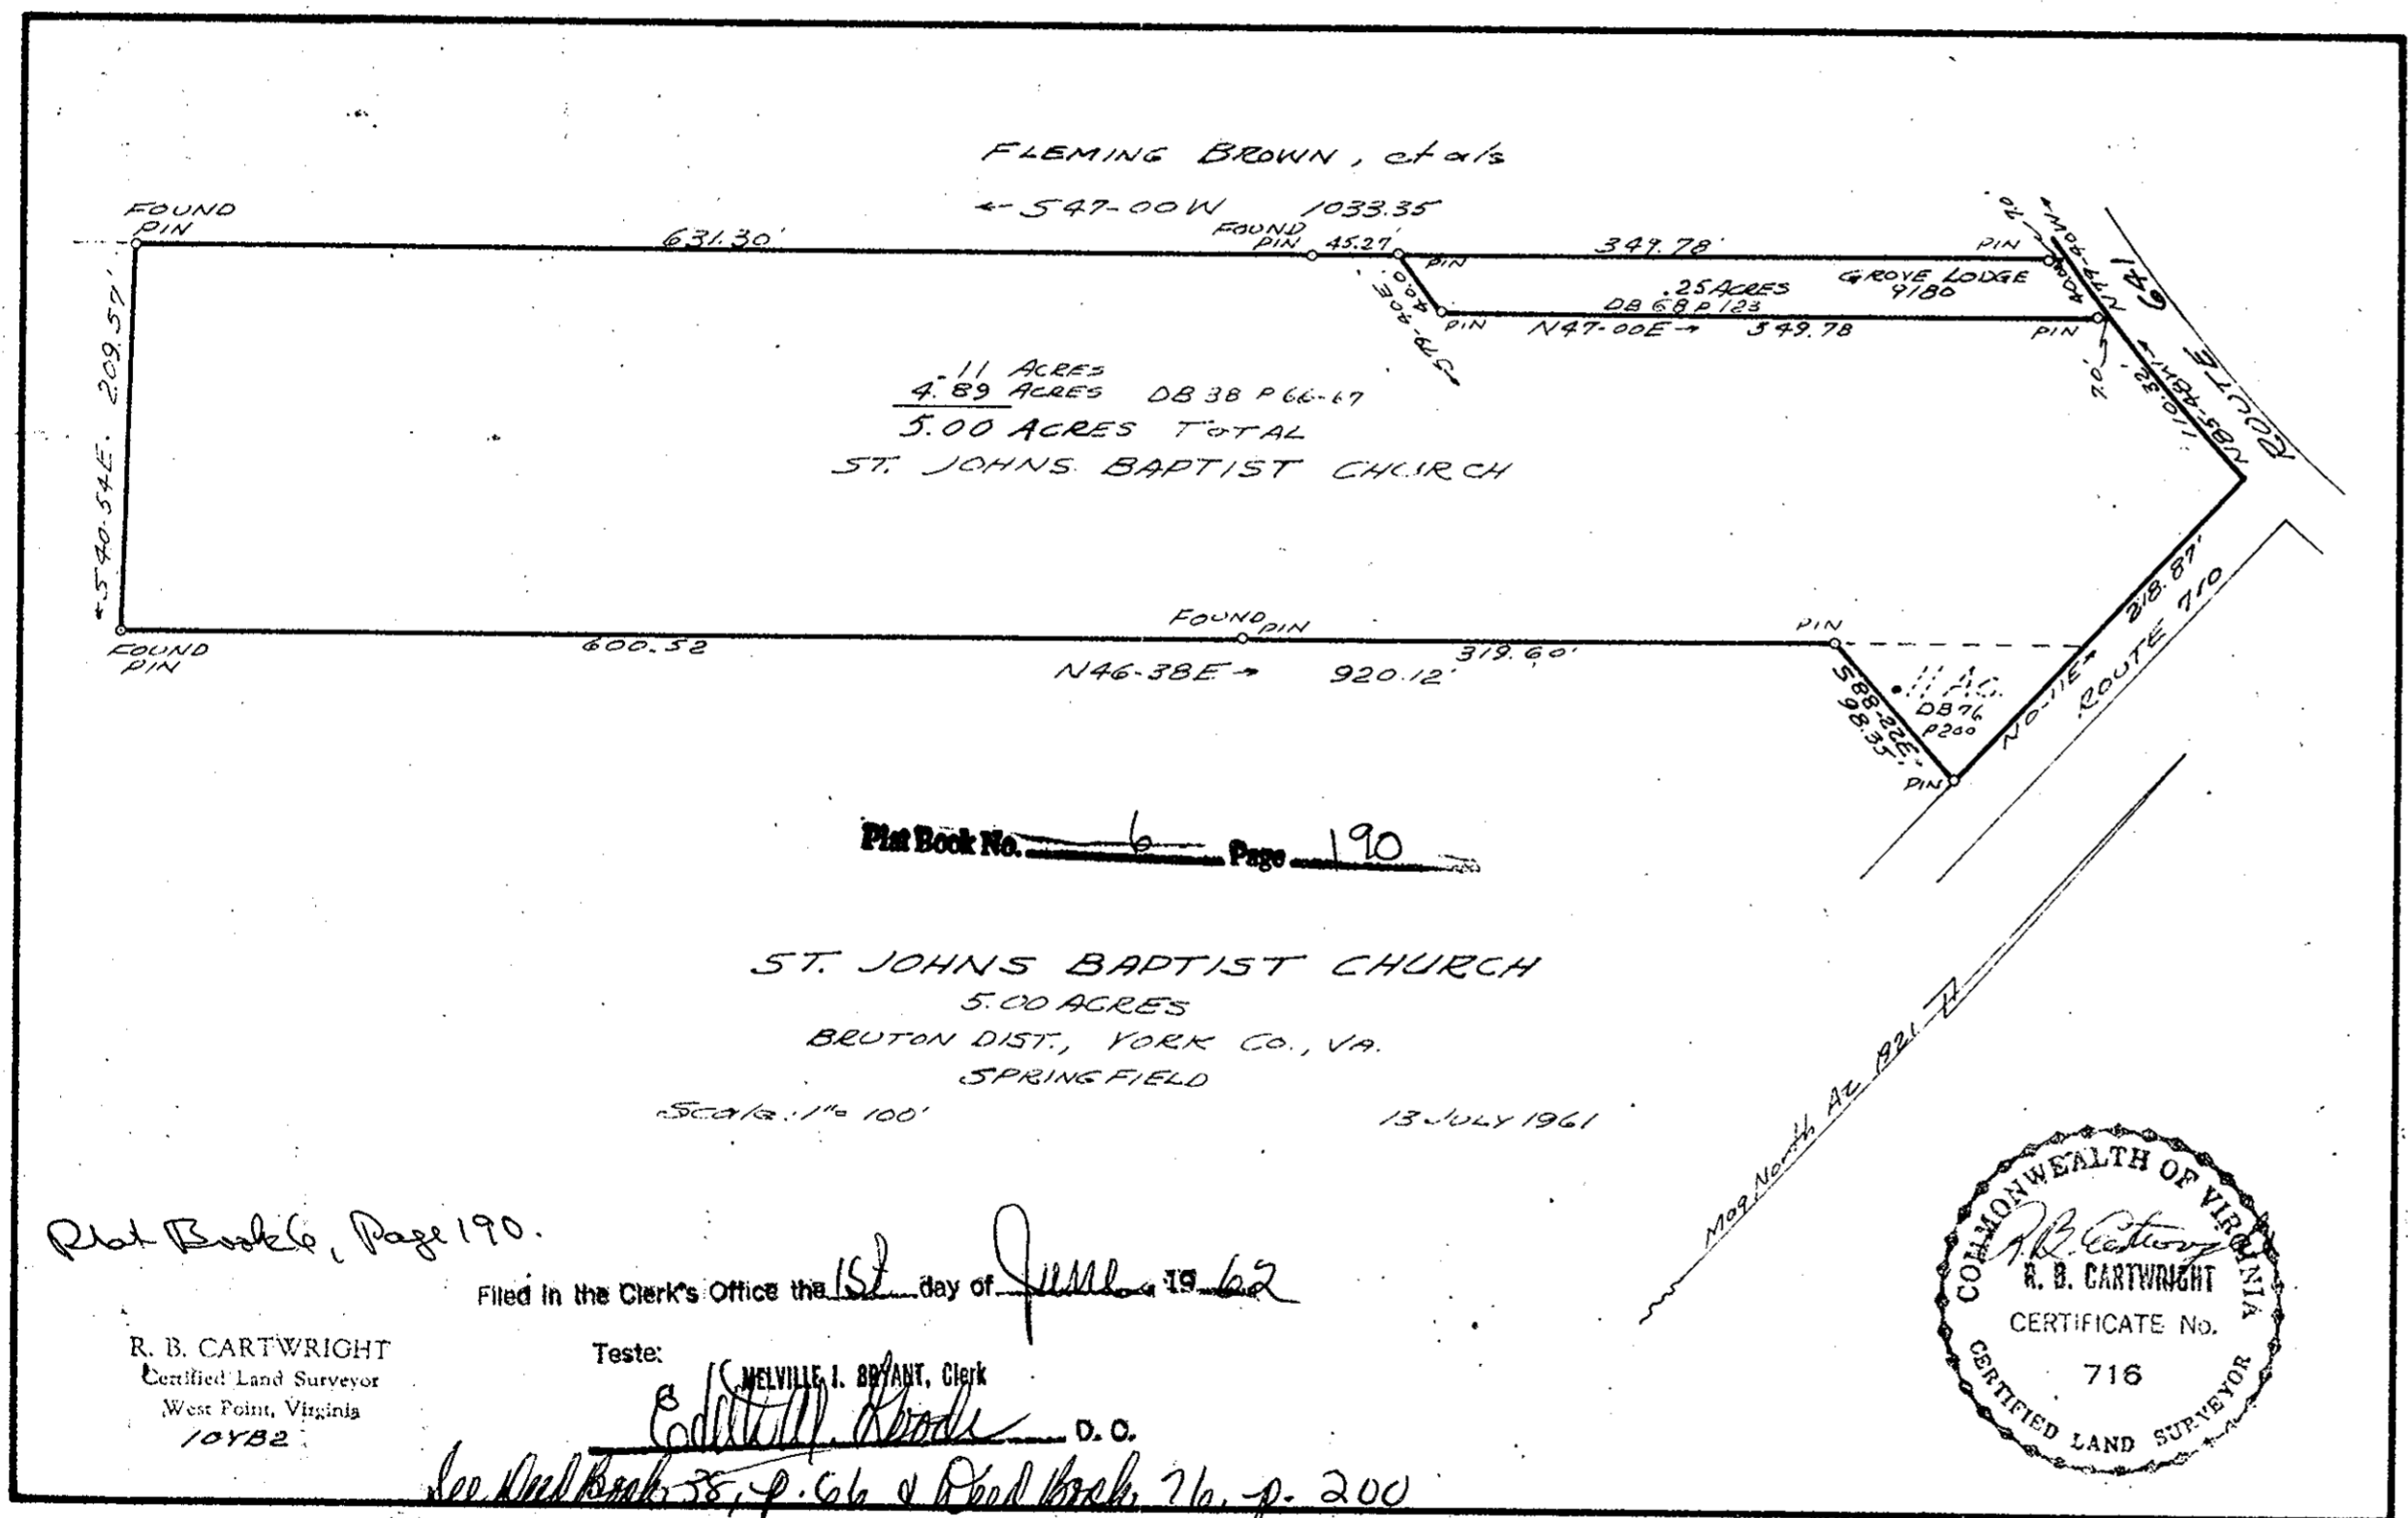 FLEMING BROWN, et als
← S47-00W 1033.35'
FOUND PIN
631.30'
FOUND PIN
45.27'
PIN
349.78'
PIN
7.0'
N79-40W→
40.00
ROUTE 641
.25 ACRES
GROVE LODGE
9180
DB 68 P 123
S79-40E
40.0'
PIN
N47-00E → 349.78
PIN
7.0'
N85-48W→
110.32'
←S40-54E. 209.57'
.11 ACRES
4.89 ACRES DB 38 P 66-67
5.00 ACRES TOTAL
ST. JOHNS BAPTIST CHURCH
FOUND PIN
600.52
FOUND PIN
N46-38E → 920.12'
319.60'
PIN
S88-22E
98.35
.11 Ac.
DB 76
P200
PIN
N0-11E→
218.87'
ROUTE 710
Plat Book No. 6 Page 190
ST. JOHNS BAPTIST CHURCH
5.00 ACRES
BRUTON DIST., YORK CO., VA.
SPRINGFIELD
Scale: 1"= 100'
13 JULY 1961
Mag North Az 1921
Plat Book 6, Page 190.
Filed in the Clerk's Office the 1st day of 19 62
Teste:
MELVILLE I. BRYANT, Clerk
D. C.
See Deed Book 38, p. 66 & Deed Book 76, p. 200
R. B. CARTWRIGHT
Certified Land Surveyor
West Point, Virginia
10YB2
COMMONWEALTH OF VIRGINIA
R. B. CARTWRIGHT
CERTIFICATE No.
716
CERTIFIED LAND SURVEYOR